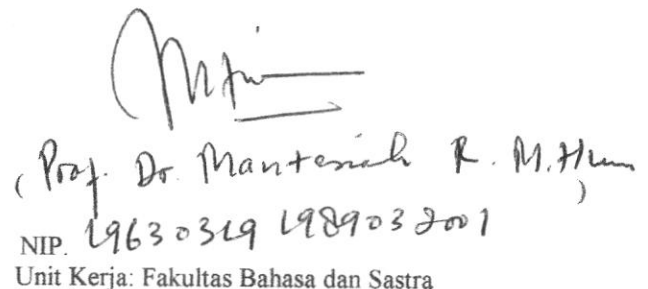 ( Prof. Dr. Mantasiah R. M.Hum )
NIP. 19630319 198903 2001
Unit Kerja: Fakultas Bahasa dan Sastra